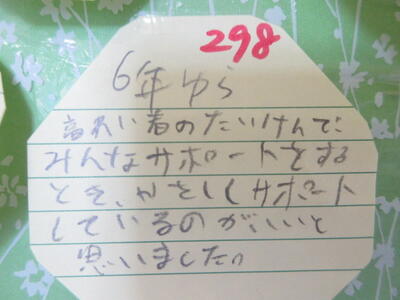 298
6年 ゆら
高れい者のたいけんで
みんなサポートをする
とき、やさしくサポート
しているのがいいと
思いました。